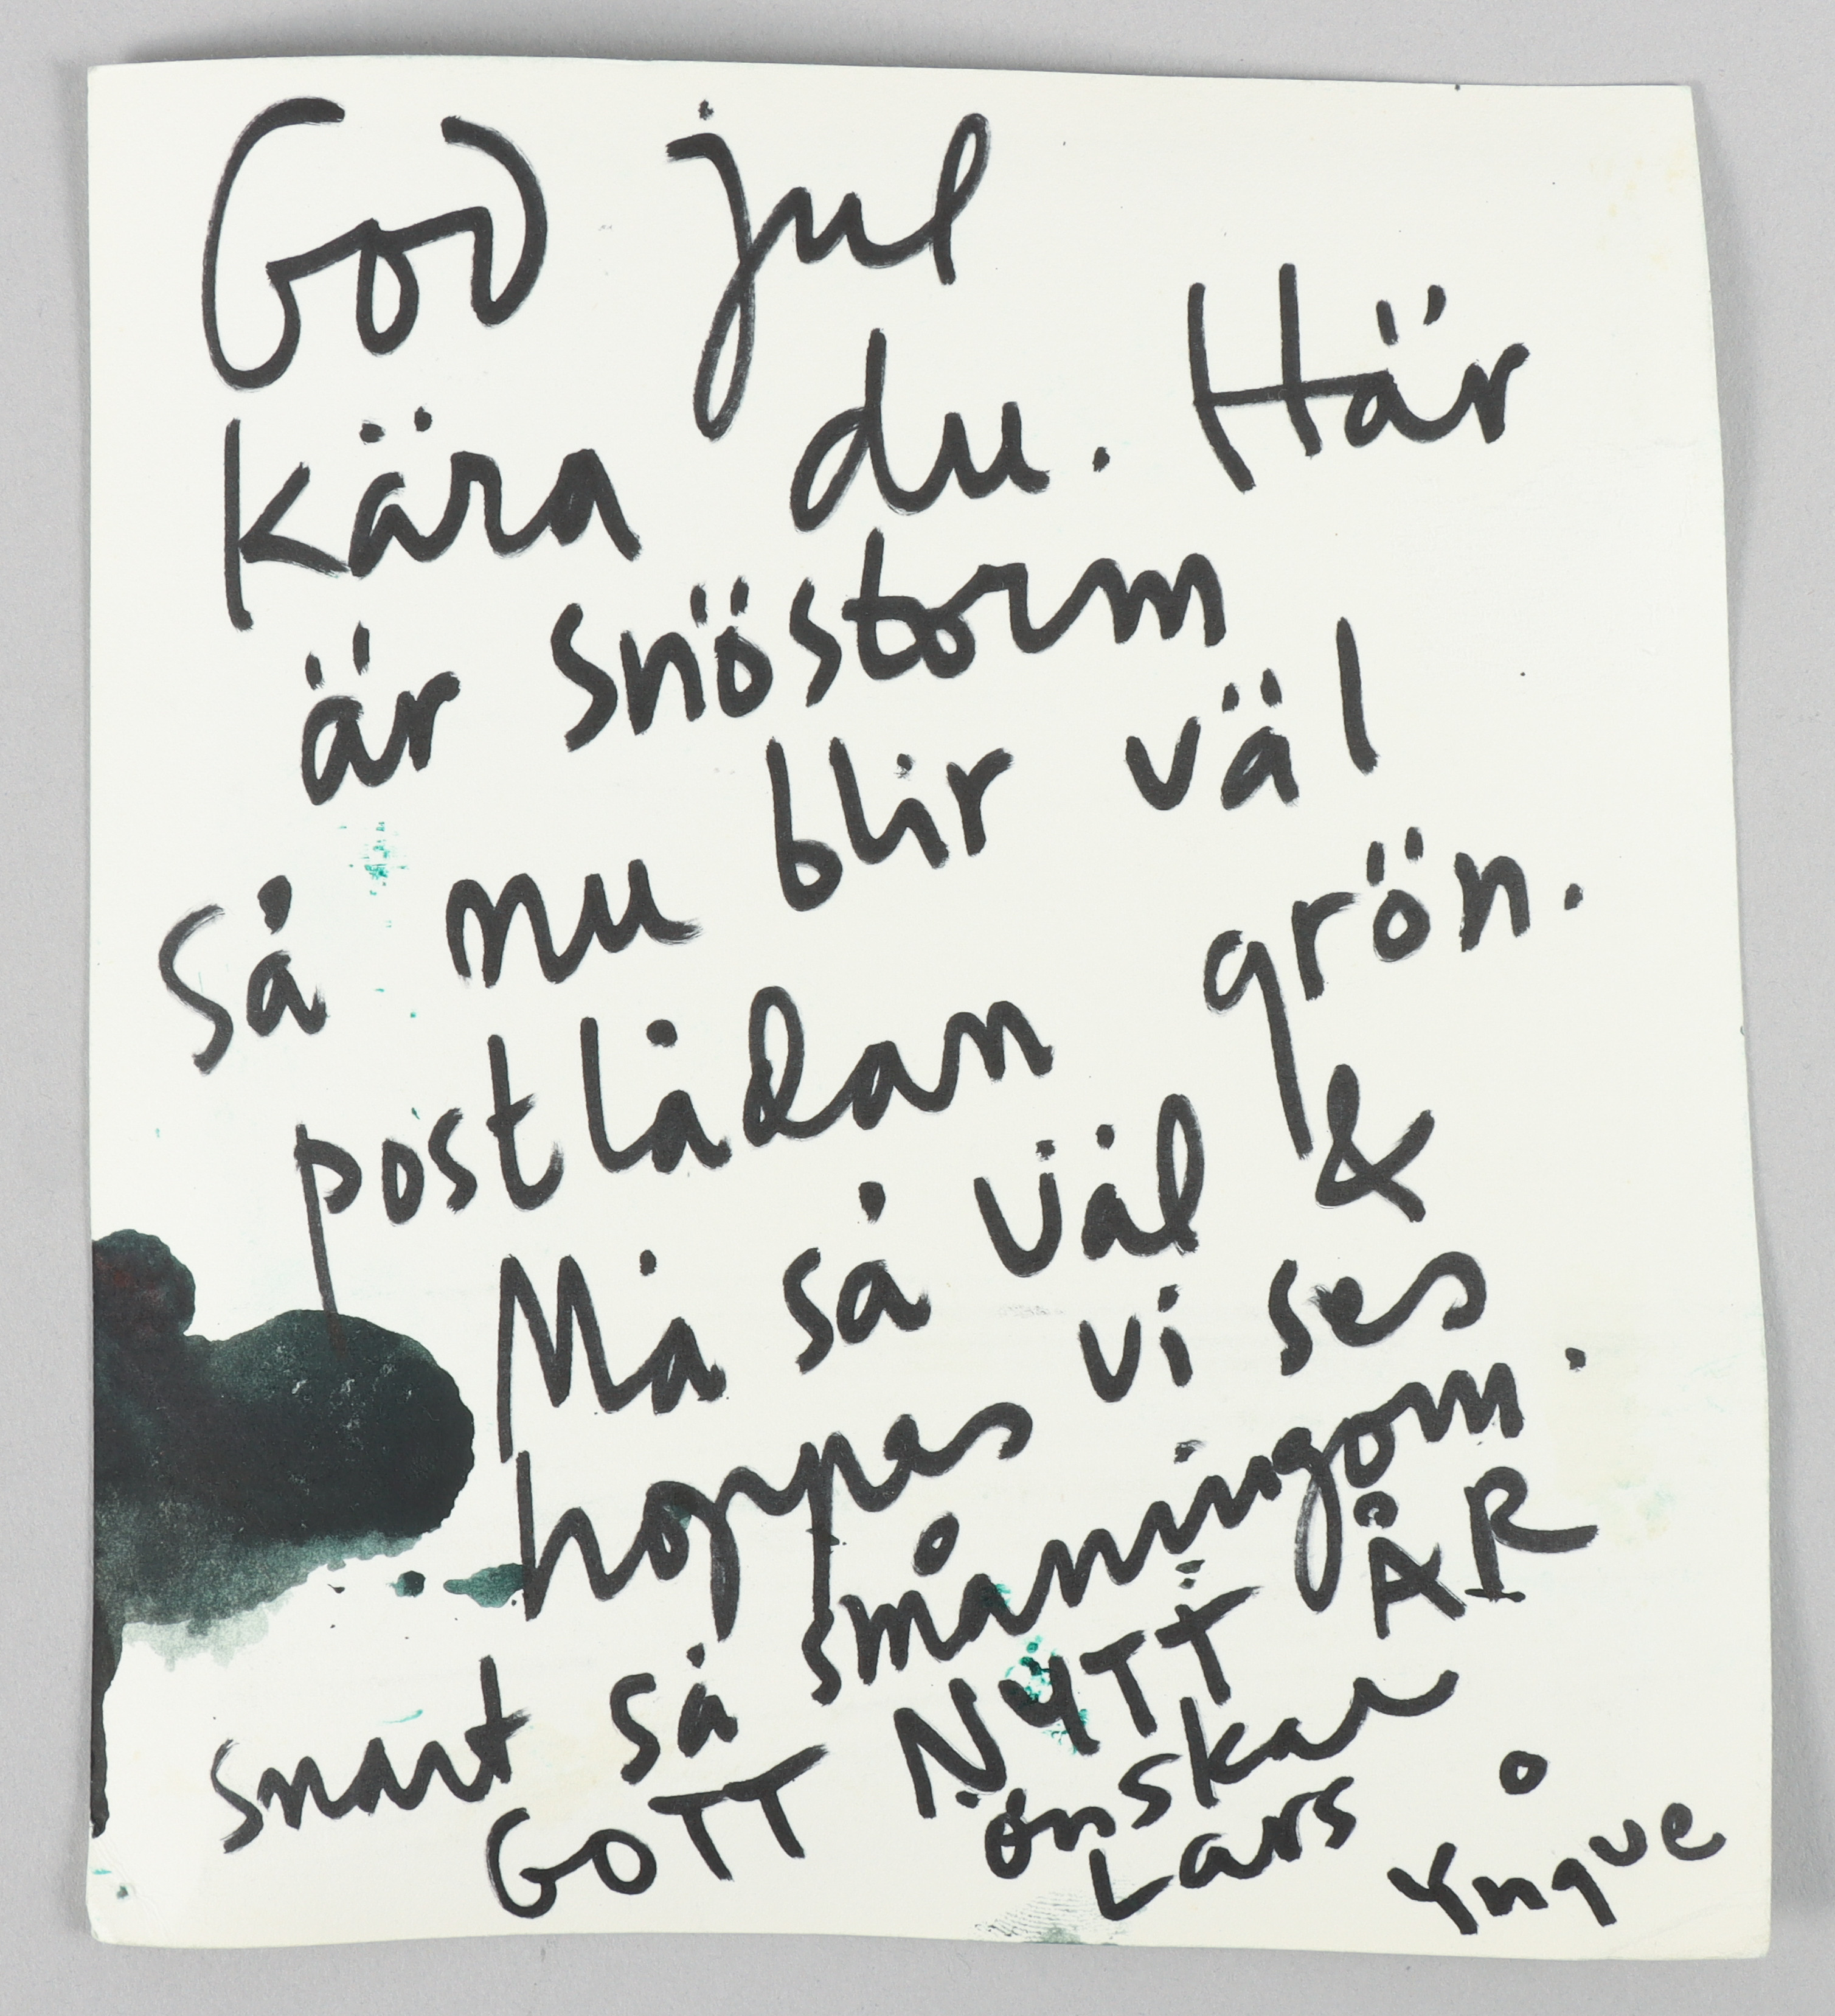 God jul
kära du. Här
är snöstorm
så nu blir väl
postlådan grön.
Må så väl &
hoppas vi ses
snart så småningom.
GOTT NYTT ÅR
önskar
Lars
Yngve